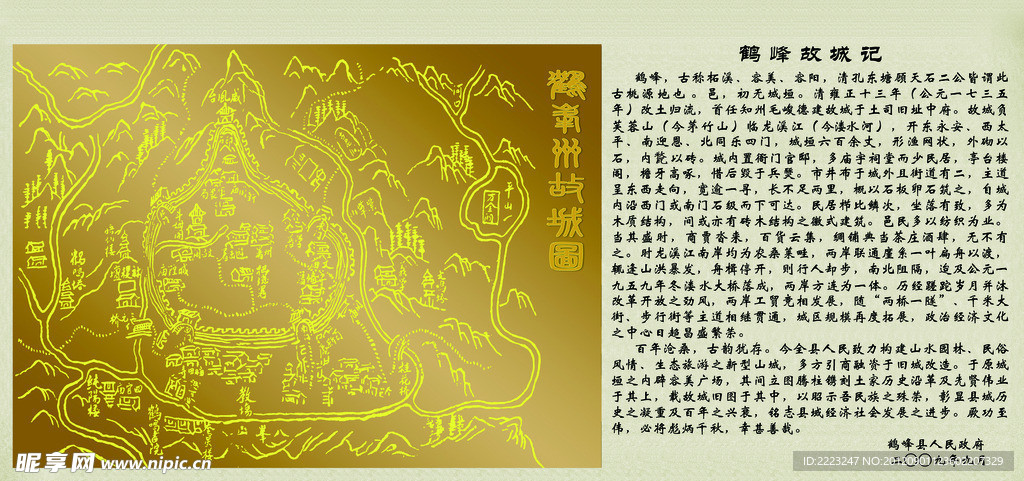 鹤峰故城记
鹤峰，古称柘溪、容美、容阳，清孔东塘顾天石二公皆谓此
古桃源地也。邑，初无城垣。清雍正十三年（公元一七三五
年）改土归流，首任知州毛峻德建故城于土司旧址中府。故城负
芙蓉山（今茅竹山）临龙溪江（今溇水河），开东永安、西太
平、南迎恩、北同乐四门，城垣六百余丈，形渔网状，外砌以
石，内甃以砖。城内置衙门官邸，多庙宇祠堂而少民居，亭台楼
阁，檐牙高啄，惜后毁于兵燹。市井布于城外且街道有二，主道
呈东西走向，宽逾一寻，长不足两里，概以石板卵石筑之，自城
内沿西门或南门石级而下可达。民居栉比鳞次，坐落有致，多为
木质结构，间或亦有砖木结构之徽式建筑。邑民多以纺织为业。
当其盛时，商贾沓来，百货云集，绸铺典当茶庄酒肆，无不有
之。时龙溪江南岸均为农桑菜畦，两岸联通廑系一叶扁舟以渡，
辄逢山洪暴发，舟楫停开，则行人却步，南北阻隔，迨及公元一
九五九年冬溇水大桥落成，两岸方连为一体。历经蹉跎岁月并沐
改革开放之劲风，两岸工贸竞相发展，随“两桥一隧”、千米大
街、步行街等主道相继贯通，城区规模再度拓展，政治经济文化
之中心日趋昌盛繁荣。
百年沧桑，古韵犹存。今全县人民致力构建山水园林、民俗
风情、生态旅游之新型山城，多方引商融资于旧城改造。于原城
垣之内辟容美广场，其间立图腾柱镌刻土家历史沿革及先贤伟业
于其上，载故城旧图于其中，以昭示吾民族之殊荣，彰显县城历
史之凝重及百年之兴衰，铭志县城经济社会发展之进步。厥功至
伟，必将彪炳千秋，幸甚善哉。
鹤峰县人民政府
二〇〇九年九月
鶴峯州故城圖
威風台
鶴鳴塔
平山
教場
昵享网 www.nipic.cn